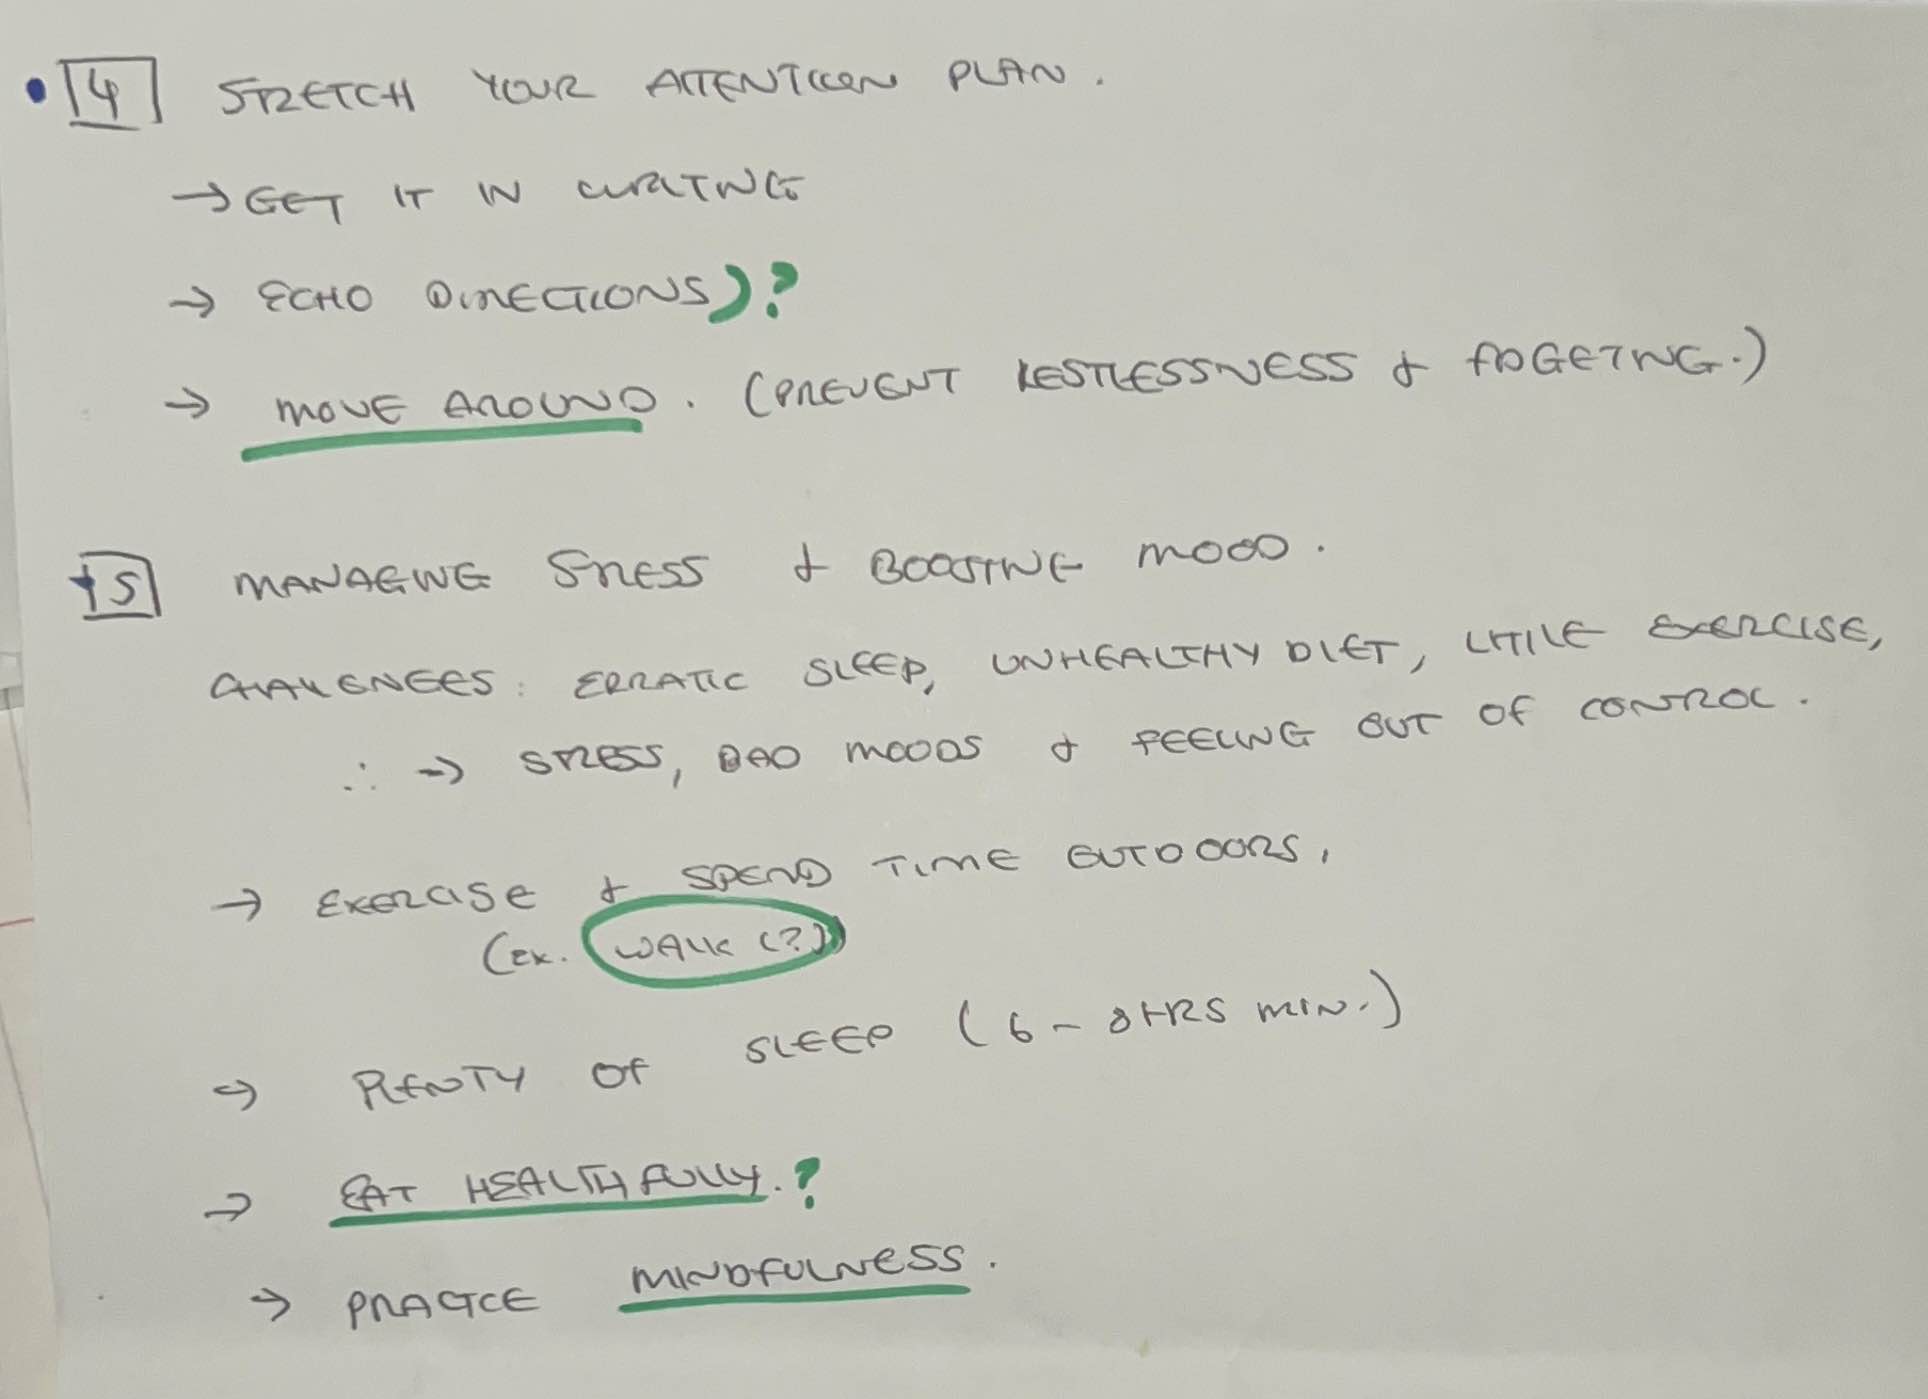 • 4 STRETCH YOUR ATTENTION PLAN.
→ GET IT IN WRITING
→ ECHO DIRECTIONS)?
→ MOVE AROUND. (PREVENT RESTLESSNESS & FIDGETING.)
+5 MANAGING STRESS & BOOSTING MOOD.
CHALLENGES: ERRATIC SLEEP, UNHEALTHY DIET, LITTLE EXERCISE,
∴ → STRESS, BAD MOODS & FEELING OUT OF CONTROL.
→ EXERCISE & SPEND TIME OUTDOORS,
(ex. WALK (?))
→ PLENTY OF SLEEP (6 - 8HRS MIN.)
→ EAT HEALTHFULLY. ?
→ PRACTICE MINDFULNESS.